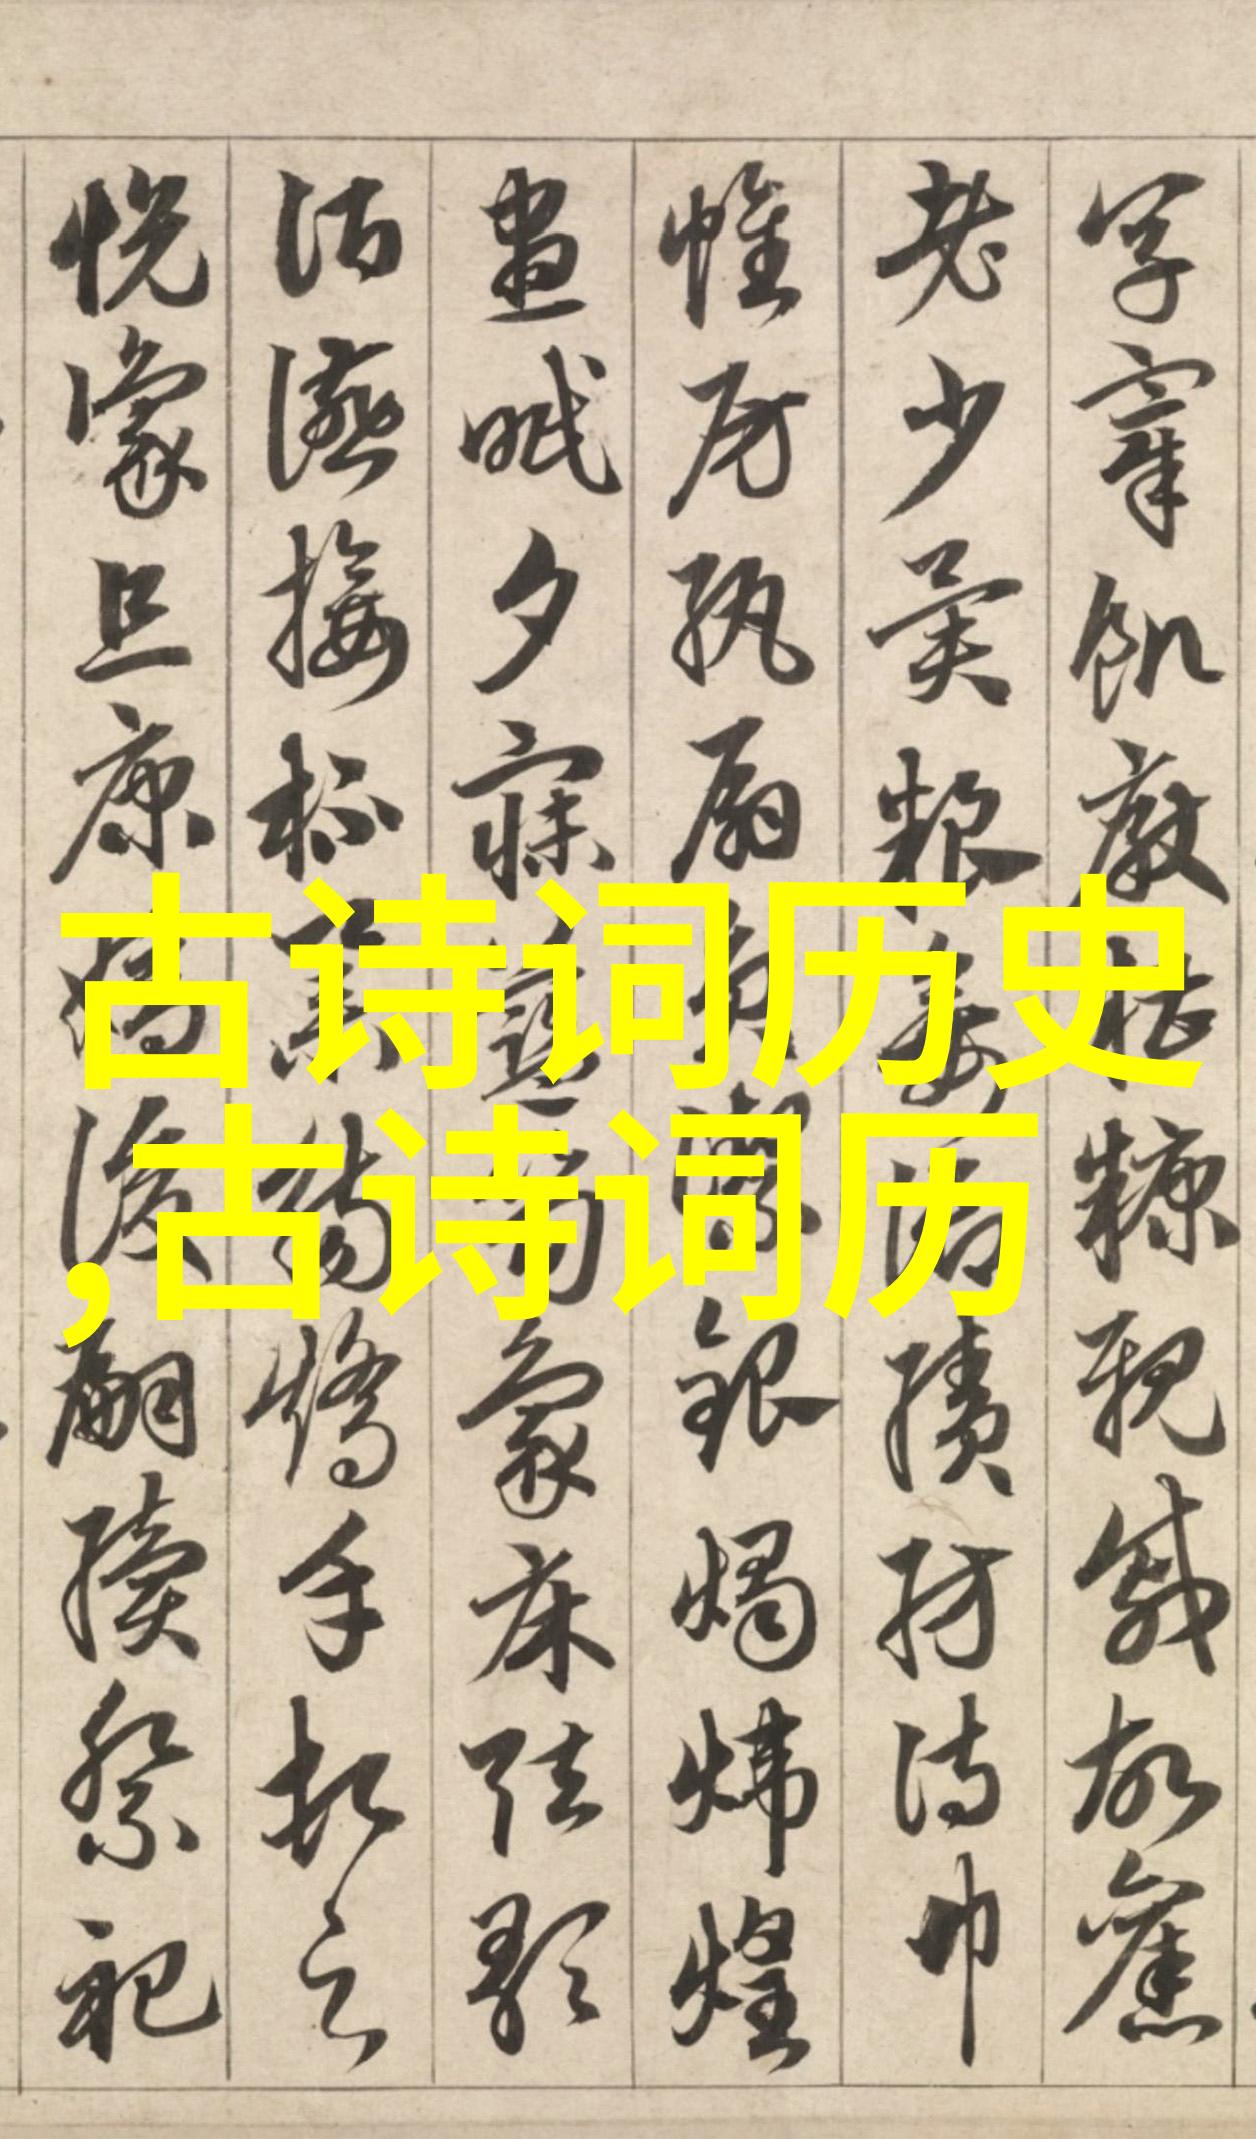 古诗词历史
,古诗词历
烹宰飢厭糟糠親戚故舊
老少異糧妾御績紡侍巾
帷房紈扇員潔銀燭煒煌
晝眠夕寐藍笋象床弦歌
酒讌接杯舉觴矯手頓足
悅豫且康嫡後嗣續祭祀